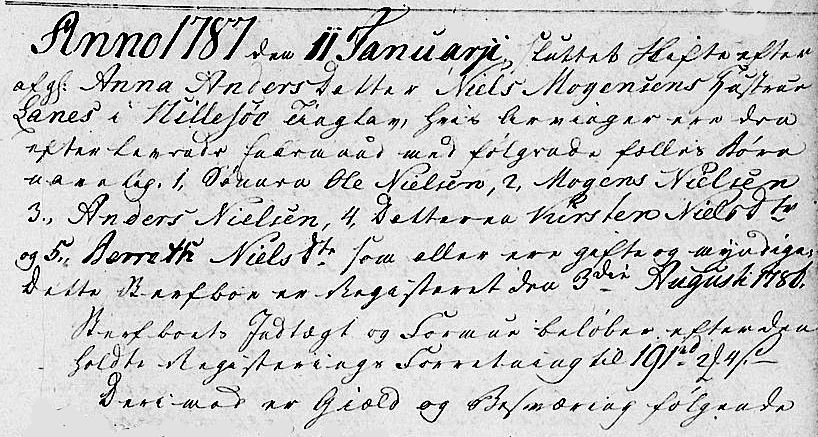 Anno 1787 den 11 Januarji, sluttet Skifte efter
afg: Anna Anders Detter Niels Mogensens Hustrue
Lanes i Hillesöe Tinglav, hvis Arvinger ere den
efterlevende Enkemand med følgende fælles Børn
navnlig. 1, Sönnen Ole Nielsen, 2, Mogens Nielsen
3., Anders Nielsen, 4, Detteren Kirsten Niels Dtr
og 5., Berreth Niels Dtr som aller ere gifte og myndige,
Dette Sterfboe er Registeret den 3die Augusti 1786.
Sterfboets Indtægt og Formue beløber efter den
holdte Registerings Forretning til 191 rd 2 4
Derimod er Giæld og Besværing følgende